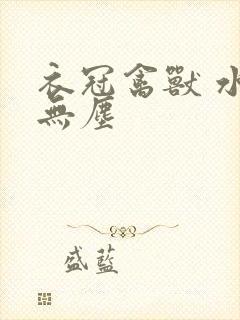 衣冠禽獸 水
無塵
盛藍